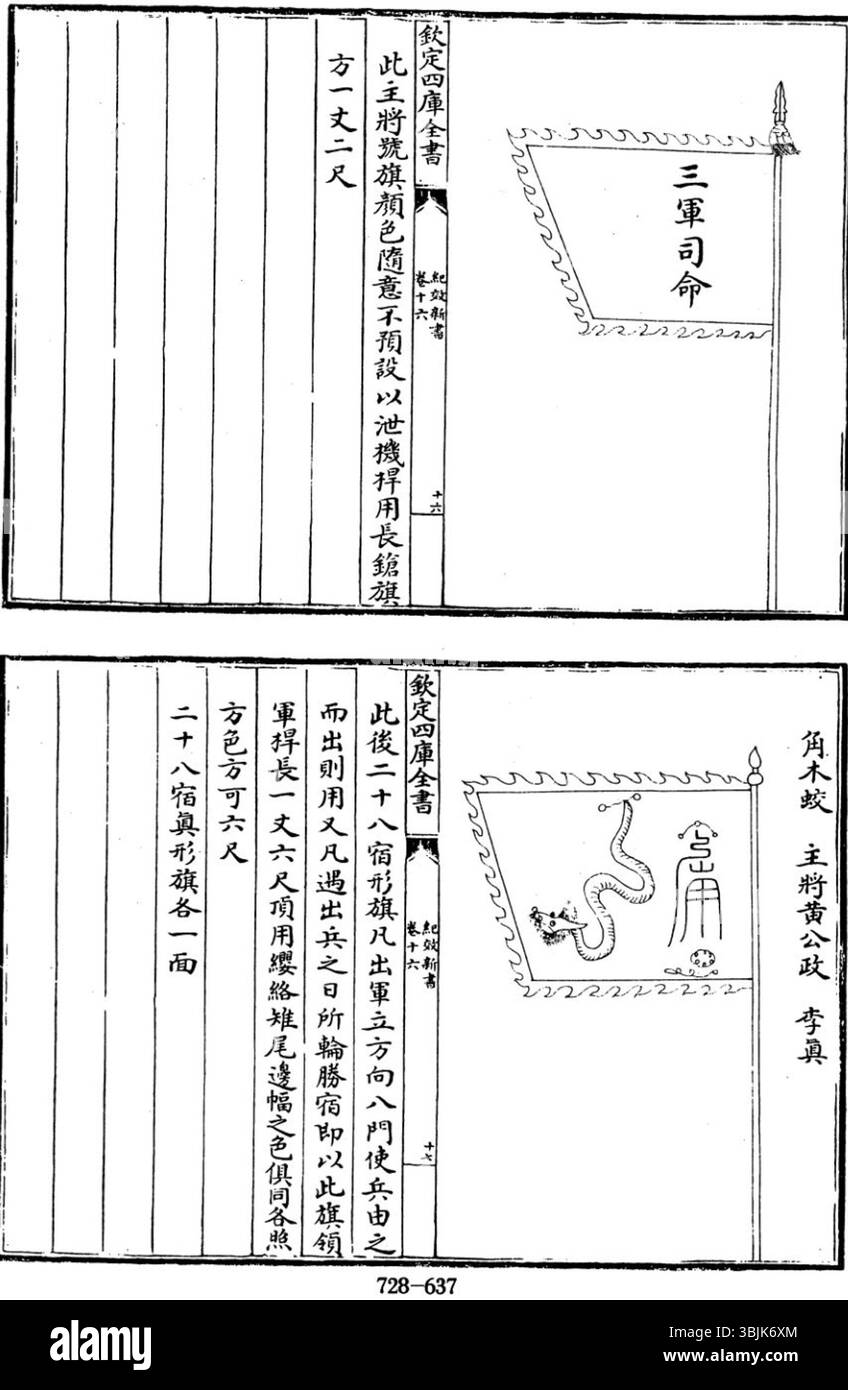 三軍司命
欽定四庫全書
紀效新書
卷十六
十六
此主將號旗顏色隨意不預設以泄機桿用長鎗旗
方一丈二尺
角木蛟 主將黃公政 李眞
欽定四庫全書
紀效新書
卷十六
十七
此後二十八宿形旗凡出軍立方向八門使兵由之
而出則用又凡遇出兵之日所輪勝宿即以此旗領
軍桿長一丈六尺頂用纓絡雉尾邊幅之色俱同各照
方色方可六尺
二十八宿眞形旗各一面
728-637
alamy
Image ID: 3BJK6XM
www.alamy.com